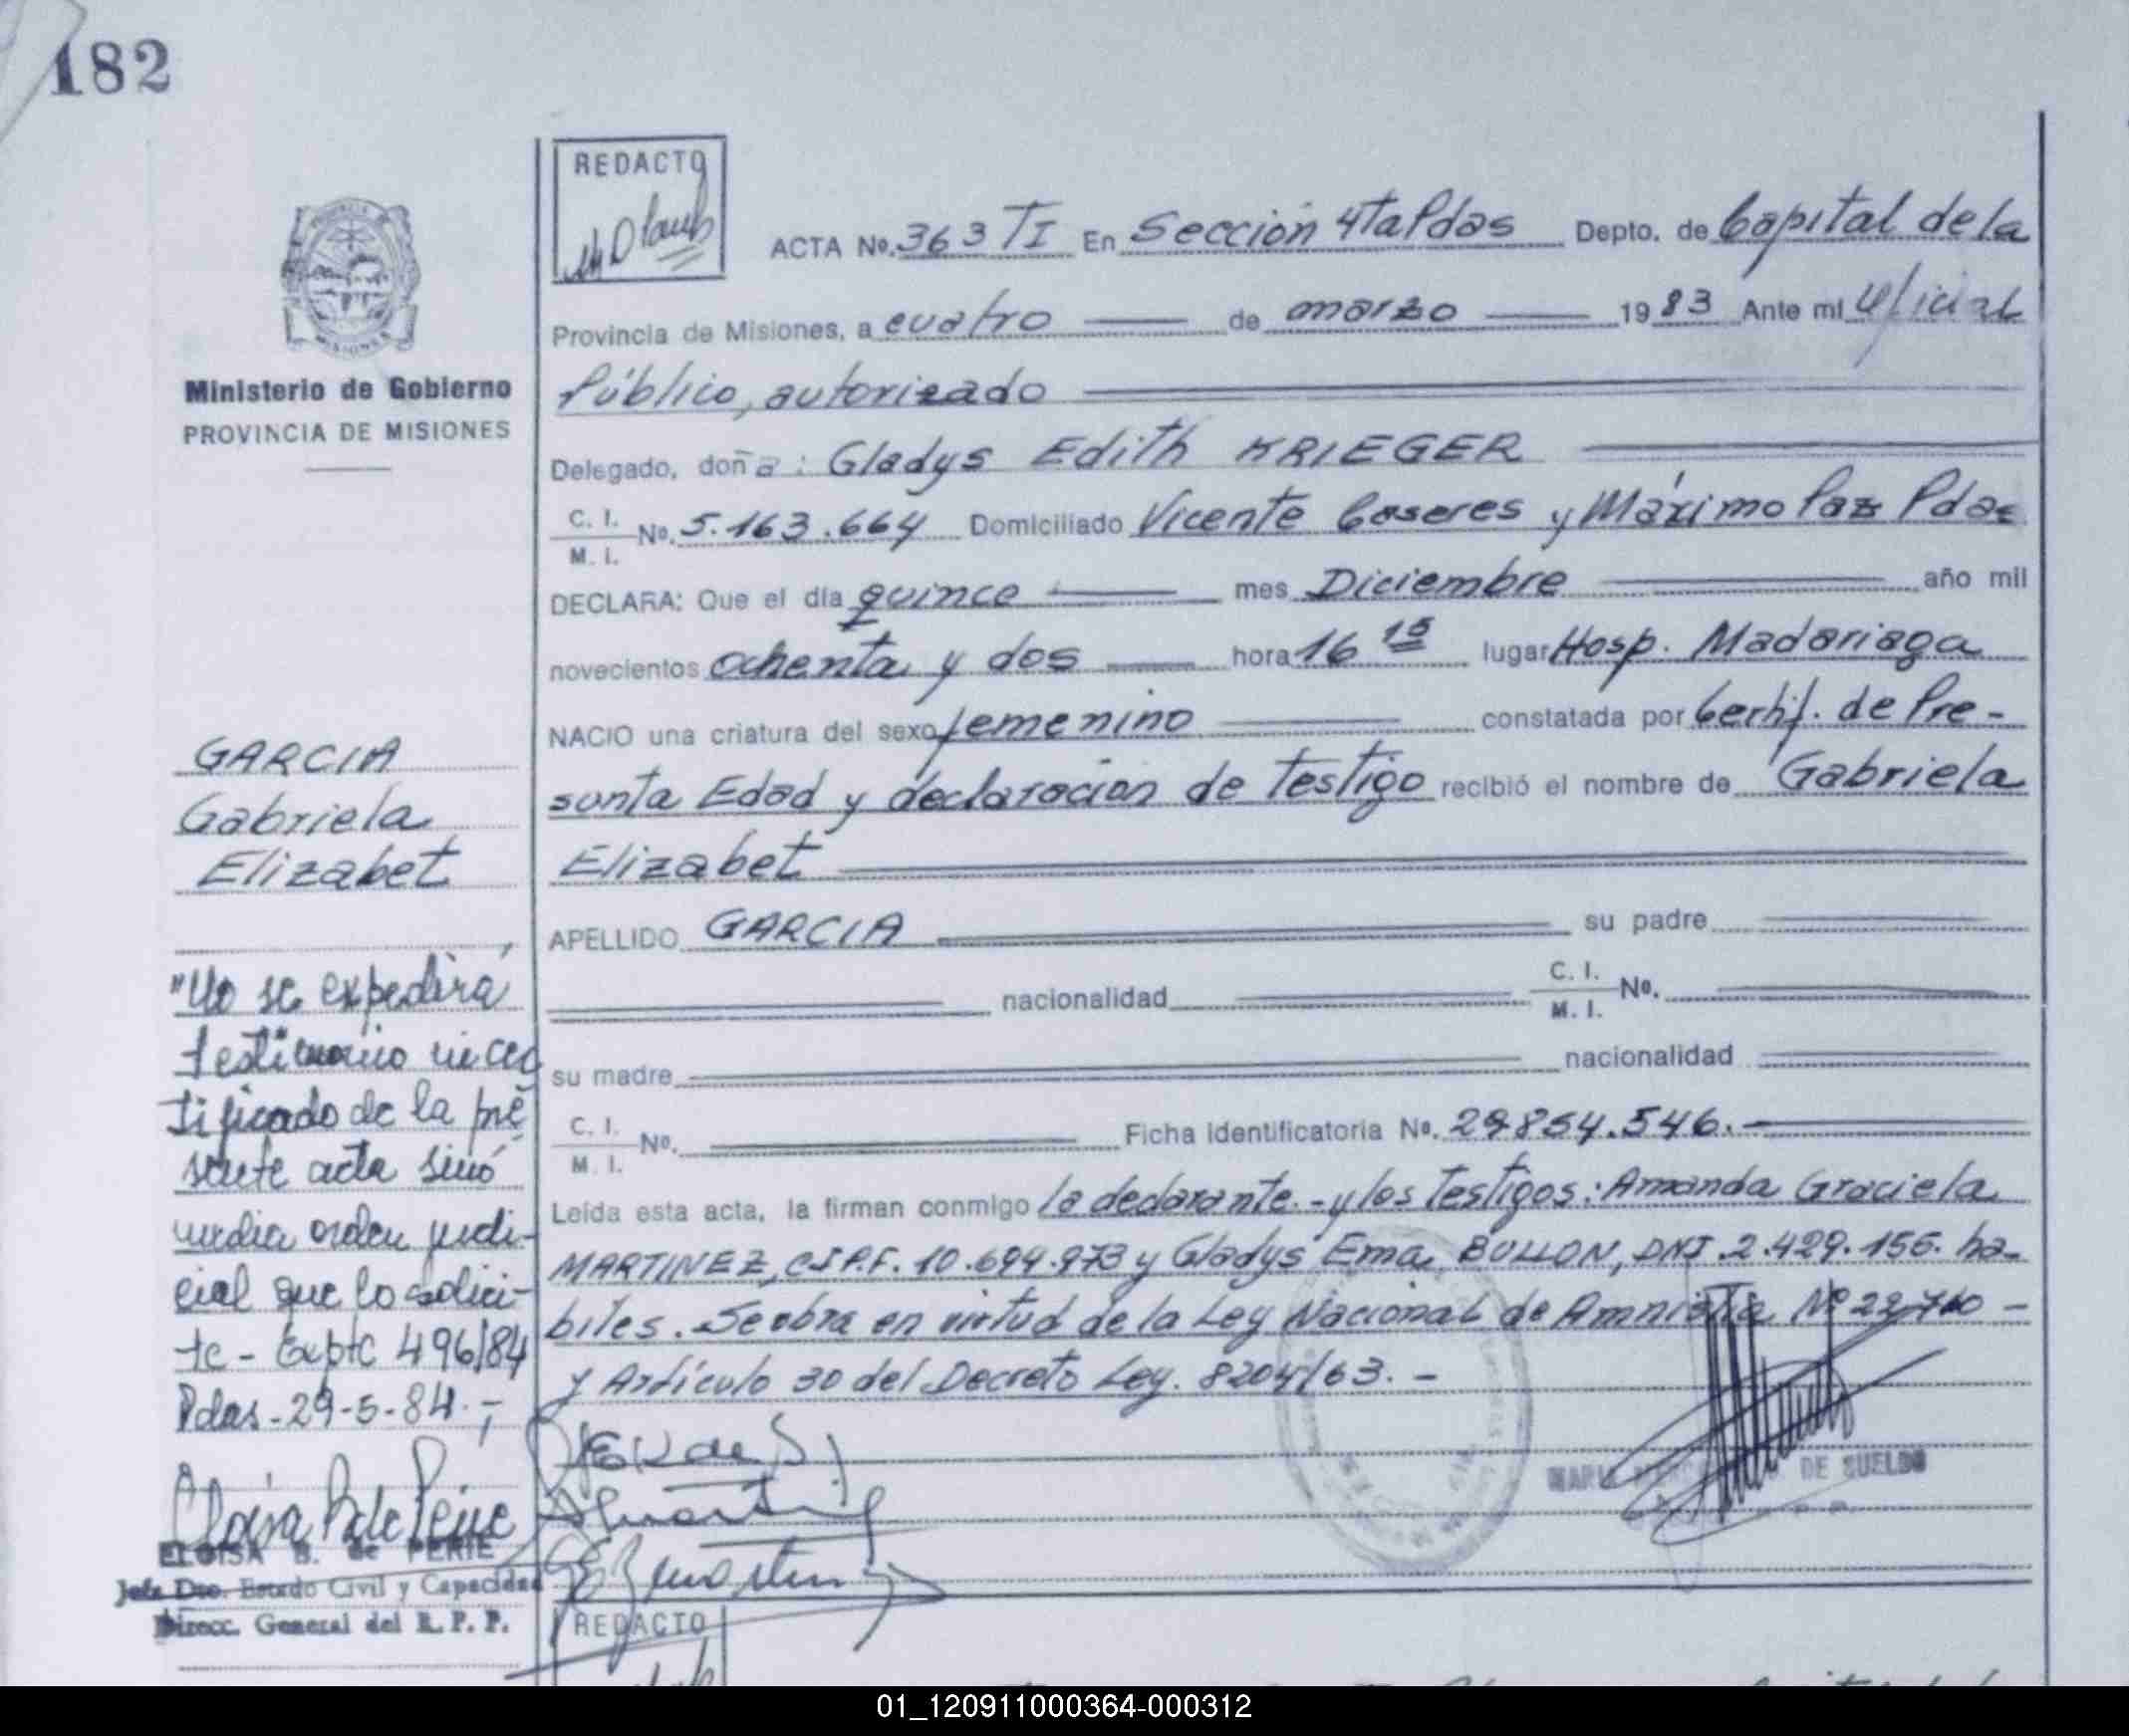 182
REDACTO
ACTA Nº. 363 TI En Sección 4ta Pdas Depto. de Capital de la
Provincia de Misiones, a cuatro de marzo 1983 Ante mi Oficial
Público, autorizado
Ministerio de Gobierno
PROVINCIA DE MISIONES
Delegado, doña : Gladys Edith KRIEGER
C. I.
M. I. Nº. 5.163.664 Domiciliado Vicente Caseres y Máximo Paz Pdas
DECLARA: Que el día quince mes Diciembre año mil
novecientos ochenta y dos hora 16 15 lugar Hosp. Madariaga
NACIO una criatura del sexo femenino constatada por Certif. de Pre-
sunta Edad y declaracion de testigo recibió el nombre de Gabriela
Elizabet
APELLIDO GARCIA su padre
nacionalidad C. I.
M. I. Nº.
su madre nacionalidad
C. I.
M. I. Nº. Ficha Identificatoria Nº. 29.854.546.
Leída esta acta, la firman conmigo la declarante.- y los testigos: Amanda Graciela
MARTINEZ, C.I.P.F. 10.694.973 y Gladys Ema BULLON, DNI. 2.429.156. ha-
biles. Se obra en virtud de la Ley Nacional de Amnistía Nº
y Artículo 30 del Decreto Ley. 8204/63. -
GARCIA
Gabriela
Elizabet
"No se expedirá
testimonio ni cer
tificado de la pre
sente acta sinó
media orden judi-
cial que lo solici-
te - Expte 496/84
Pdas - 29-5-84.-
DE SUELDO
ELOISA B. de PERIE
Jefe Dto. Estado Civil y Capacidad
Direcc. General del R. P. P.
REDACTO
01_120911000364-000312